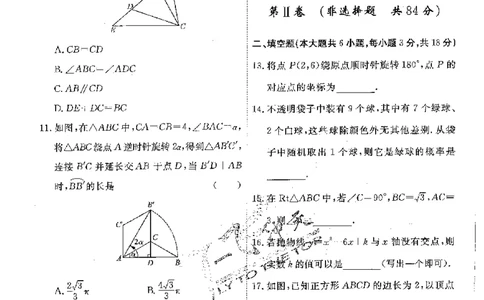 D
E
C
A. CB=CD
B. ∠ABC=∠ADC
C. AB∥CD
D. DE+DC=BC
11. 如图,在△ABC中,CA=CB=4,∠BAC=α,
将△ABC绕点A逆时针旋转2α,得到△AB'C',
连接B'C并延长交AB于点D,当B'D⊥AB
时,BB'的长是 ( )
B'
C'
C
2α
A D B
A. 2√3/3 π B. 4√3/3 π
第Ⅱ卷 (非选择题 共84分)
二、填空题(本大题共6小题,每小题3分,共18分)
13. 将点P(2,6)绕原点顺时针旋转180°,点P的
对应点的坐标为______.
14. 不透明袋子中装有9个球,其中有7个绿球、
2个白球,这些球除颜色外无其他差别. 从袋
子中随机取出1个球,则它是绿球的概率是
______.
15. 在Rt△ABC中,若∠C=90°,BC=√3,AC=
3,则
16. 若抛物线 -6x+k与x轴没有交点,则
实数k的值可以是______(写出一个即可).
17. 如图,已知正方形ABCD的边长为2,以顶点